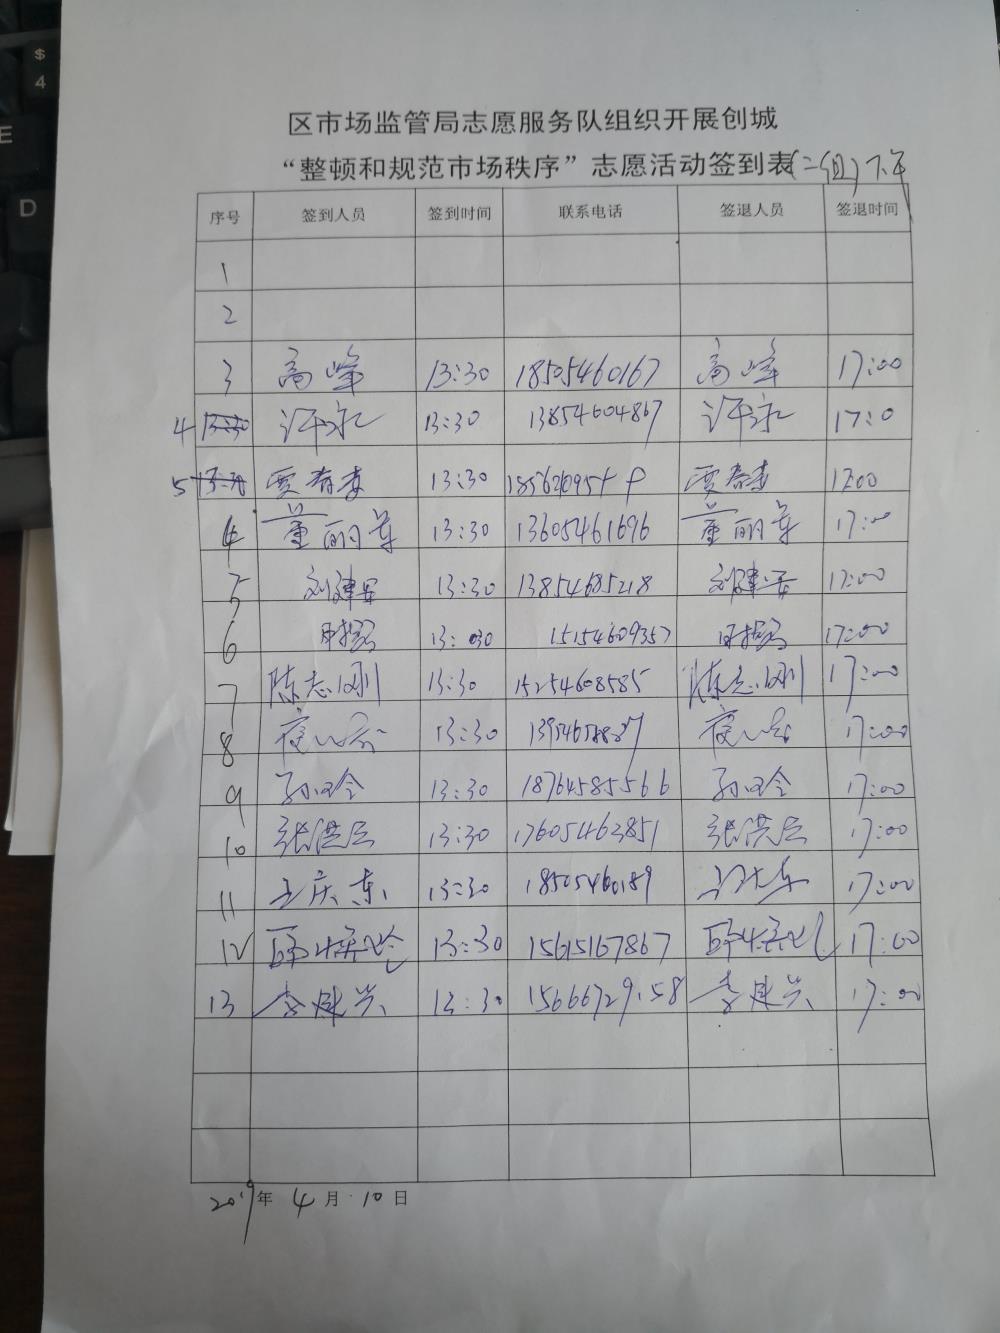 $
4
E
D
区市场监管局志愿服务队组织开展创城
“整顿和规范市场秩序”志愿活动签到表(二组)下午
序号 签到人员 签到时间 联系电话 签退人员 签退时间
1
2
3 高峰 13:30 18505460167 高峰 17:00
4 许永 13:30 13854604867 许永 17:0
5 贾春 13:30 贾春 17:00
董丽 13:30 13605461696 董丽 17:00
5 刘建 13:30 13854685218 刘建 17:00
6 13:30 15154609357 17:00
7 陈志刚 13:30 15254608585 陈志刚 17:00
8 13:30 17:00
9 孙 13:30 18764585566 孙 17:00
10 张洪 13:30 17605463851 张洪 17:00
11 王庆东 13:30 18505460189 17:00
12 13:30 15615167867 17:00
13 李 13:30 李 17:00
2019年 4月 10日